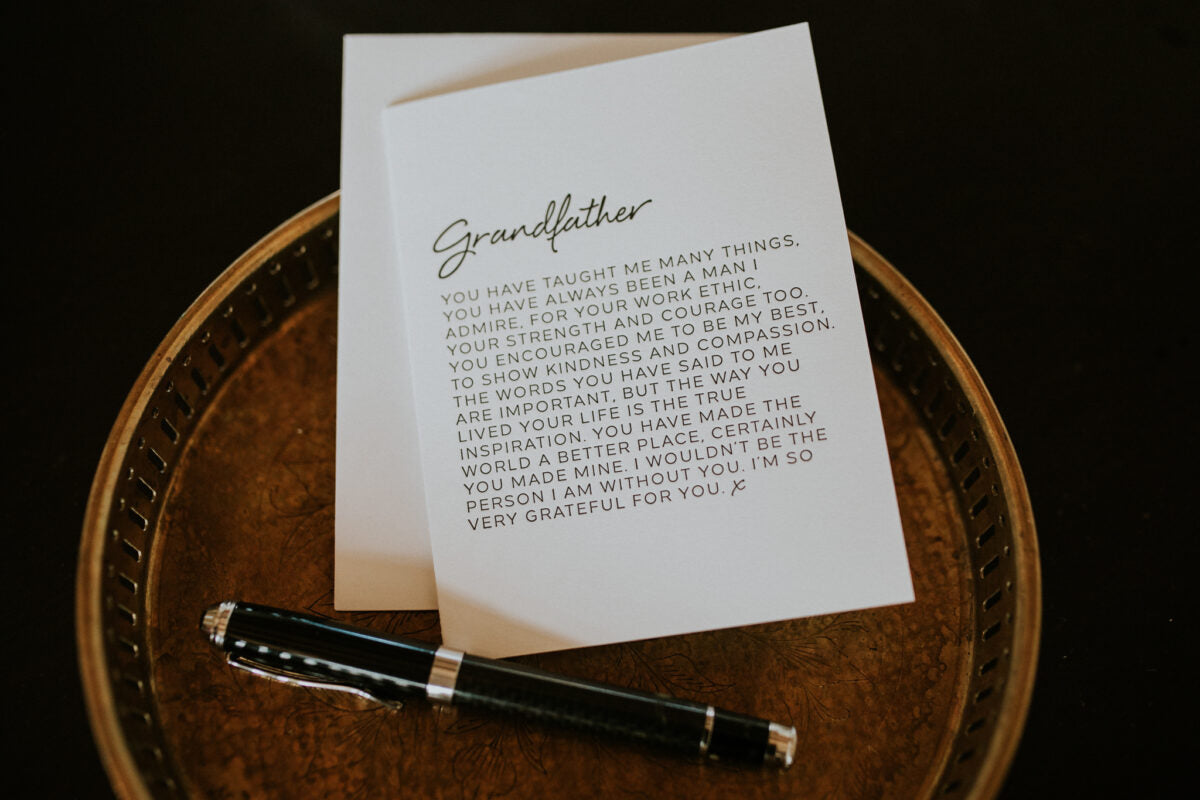 Grandfather
YOU HAVE TAUGHT ME MANY THINGS,
YOU HAVE ALWAYS BEEN A MAN I
ADMIRE, FOR YOUR WORK ETHIC,
YOUR STRENGTH AND COURAGE TOO.
YOU ENCOURAGED ME TO BE MY BEST,
TO SHOW KINDNESS AND COMPASSION.
THE WORDS YOU HAVE SAID TO ME
ARE IMPORTANT, BUT THE WAY YOU
LIVED YOUR LIFE IS THE TRUE
INSPIRATION. YOU HAVE MADE THE
WORLD A BETTER PLACE, CERTAINLY
YOU MADE MINE. I WOULDN'T BE THE
PERSON I AM WITHOUT YOU. I'M SO
VERY GRATEFUL FOR YOU. x